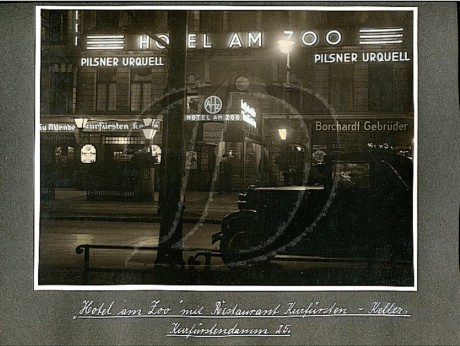 HOTEL AM ZOO
PILSNER URQUELL
PILSNER URQUELL
HOTEL AM ZOO
Kurfürsten K
Borchardt Gebrüder
"Hotel am Zoo" mit Restaurant Kurfürsten - Keller.
Kurfürstendamm 25.